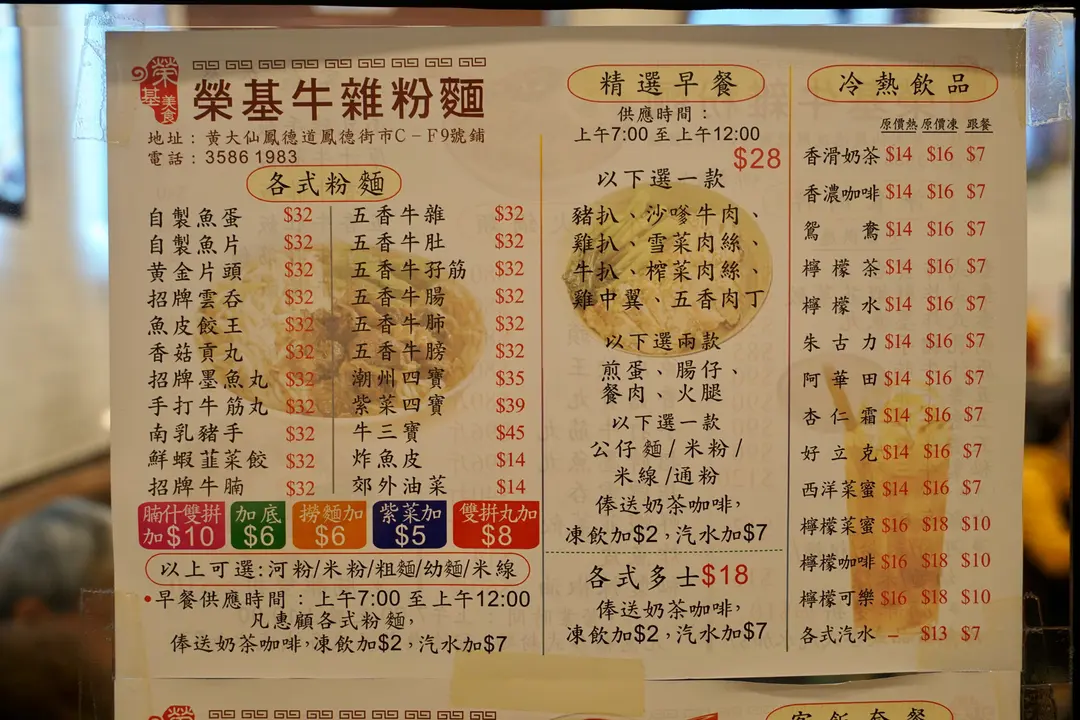 榮基美食
榮基牛雜粉麵
地址：黃大仙鳳德道鳳德街市C－F9號鋪
電話：3586 1983
各式粉麵
自製魚蛋 $32
自製魚片 $32
黃金片頭 $32
招牌雲吞 $32
魚皮餃王 $32
香菇貢丸 $32
招牌墨魚丸 $32
手打牛筋丸 $32
南乳豬手 $32
鮮蝦韮菜餃 $32
招牌牛腩 $32
五香牛雜 $32
五香牛肚 $32
五香牛孖筋 $32
五香牛腸 $32
五香牛肺 $32
五香牛膀 $32
潮州四寶 $35
紫菜四寶 $39
牛三寶 $45
炸魚皮 $14
郊外油菜 $14
腩什雙拼加$10
加底$6
撈麵加$6
紫菜加$5
雙拼丸加$8
以上可選:河粉/米粉/粗麵/幼麵/米線
•早餐供應時間：上午7:00 至上午12:00
凡惠顧各式粉麵，
俸送奶茶咖啡，凍飲加$2，汽水加$7
精選早餐
供應時間：
上午7:00 至上午12:00
$28
以下選一款
豬扒、沙嗲牛肉、
雞扒、雪菜肉絲、
牛扒、榨菜肉絲、
雞中翼、五香肉丁
以下選兩款
煎蛋、腸仔、
餐肉、火腿
以下選一款
公仔麵/米粉/
米線/通粉
俸送奶茶咖啡，
凍飲加$2，汽水加$7
各式多士$18
俸送奶茶咖啡，
凍飲加$2，汽水加$7
冷熱飲品
原價熱 原價凍 跟餐
香滑奶茶 $14 $16 $7
香濃咖啡 $14 $16 $7
鴛鴦 $14 $16 $7
檸檬茶 $14 $16 $7
檸檬水 $14 $16 $7
朱古力 $14 $16 $7
阿華田 $14 $16 $7
杏仁霜 $14 $16 $7
好立克 $14 $16 $7
西洋菜蜜 $14 $16 $7
檸檬菜蜜 $16 $18 $10
檸檬咖啡 $16 $18 $10
檸檬可樂 $16 $18 $10
各式汽水 – $13 $7